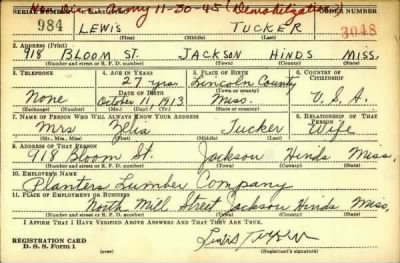 SERIAL NUMBER ORDER NUMBER
Army 11-30-45 (Demobilization)
984 LEWIS TUCKER 3048
(First) (Middle) (Last)
2. ADDRESS (Print)
918 BLOOM ST. JACKSON HINDS MISS.
(Number and street or R. F. D. number) (Town) (County) (State)
3. TELEPHONE 4. AGE IN YEARS 5. PLACE OF BIRTH 6. COUNTRY OF CITIZENSHIP
27 yrs. Lincoln County
DATE OF BIRTH (Town or county)
None October 11, 1913 Miss. U.S.A.
(Exchange) (Number) (Mo.) (Day) (Yr.) (State or country)
7. NAME OF PERSON WHO WILL ALWAYS KNOW YOUR ADDRESS 8. RELATIONSHIP OF THAT PERSON
Mrs Tucker Wife
(Mr., Mrs., Miss) (First) (Middle) (Last)
9. ADDRESS OF THAT PERSON
918 Bloom St. Jackson Hinds Miss.
(Number and street or R. F. D. number) (Town) (County) (State)
10. EMPLOYER'S NAME
Planters Lumber Company
11. PLACE OF EMPLOYMENT OR BUSINESS
North Mill Street Jackson Hinds Miss.
(Number and street or R. F. D. number) (Town) (County) (State)
I AFFIRM THAT I HAVE VERIFIED ABOVE ANSWERS AND THAT THEY ARE TRUE.
REGISTRATION CARD
D. S. S. Form 1 Lewis Tucker
(Registrant's signature)